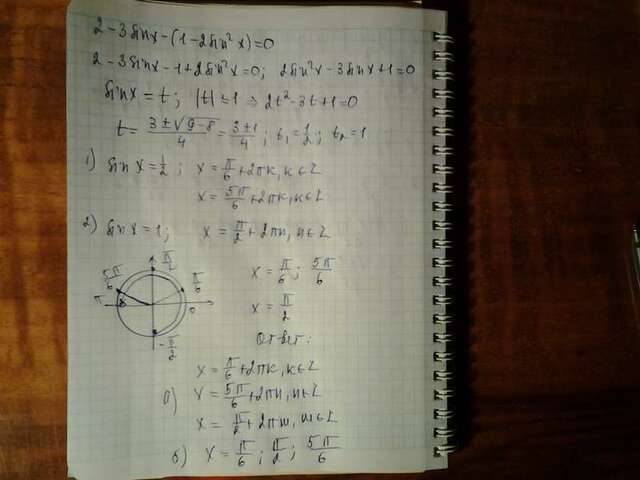 2-3sinx-(1-2sin²x)=0
2-3sinx-1+2sin²x=0; 2sin²x-3sinx+1=0
sinx=t; |t|≤1 ⇒ 2t²-3t+1=0
t=(3±√9-8)/4=(3±1)/4; t₁=1/2; t₂=1
1) sinx=1/2; x=π/6+2πk, k∈Z
x=5π/6+2πk, k∈Z
2) sinx=1; x=π/2+2πn, n∈Z
π/2
5π/6 π/6 x=π/6; 5π/6
π 0
x=π/2
-π/2 Ответ:
x=π/6+2πk, k∈Z
а) x=5π/6+2πn, n∈Z
x=π/2+2πm, m∈Z
б) x=π/6; π/2; 5π/6